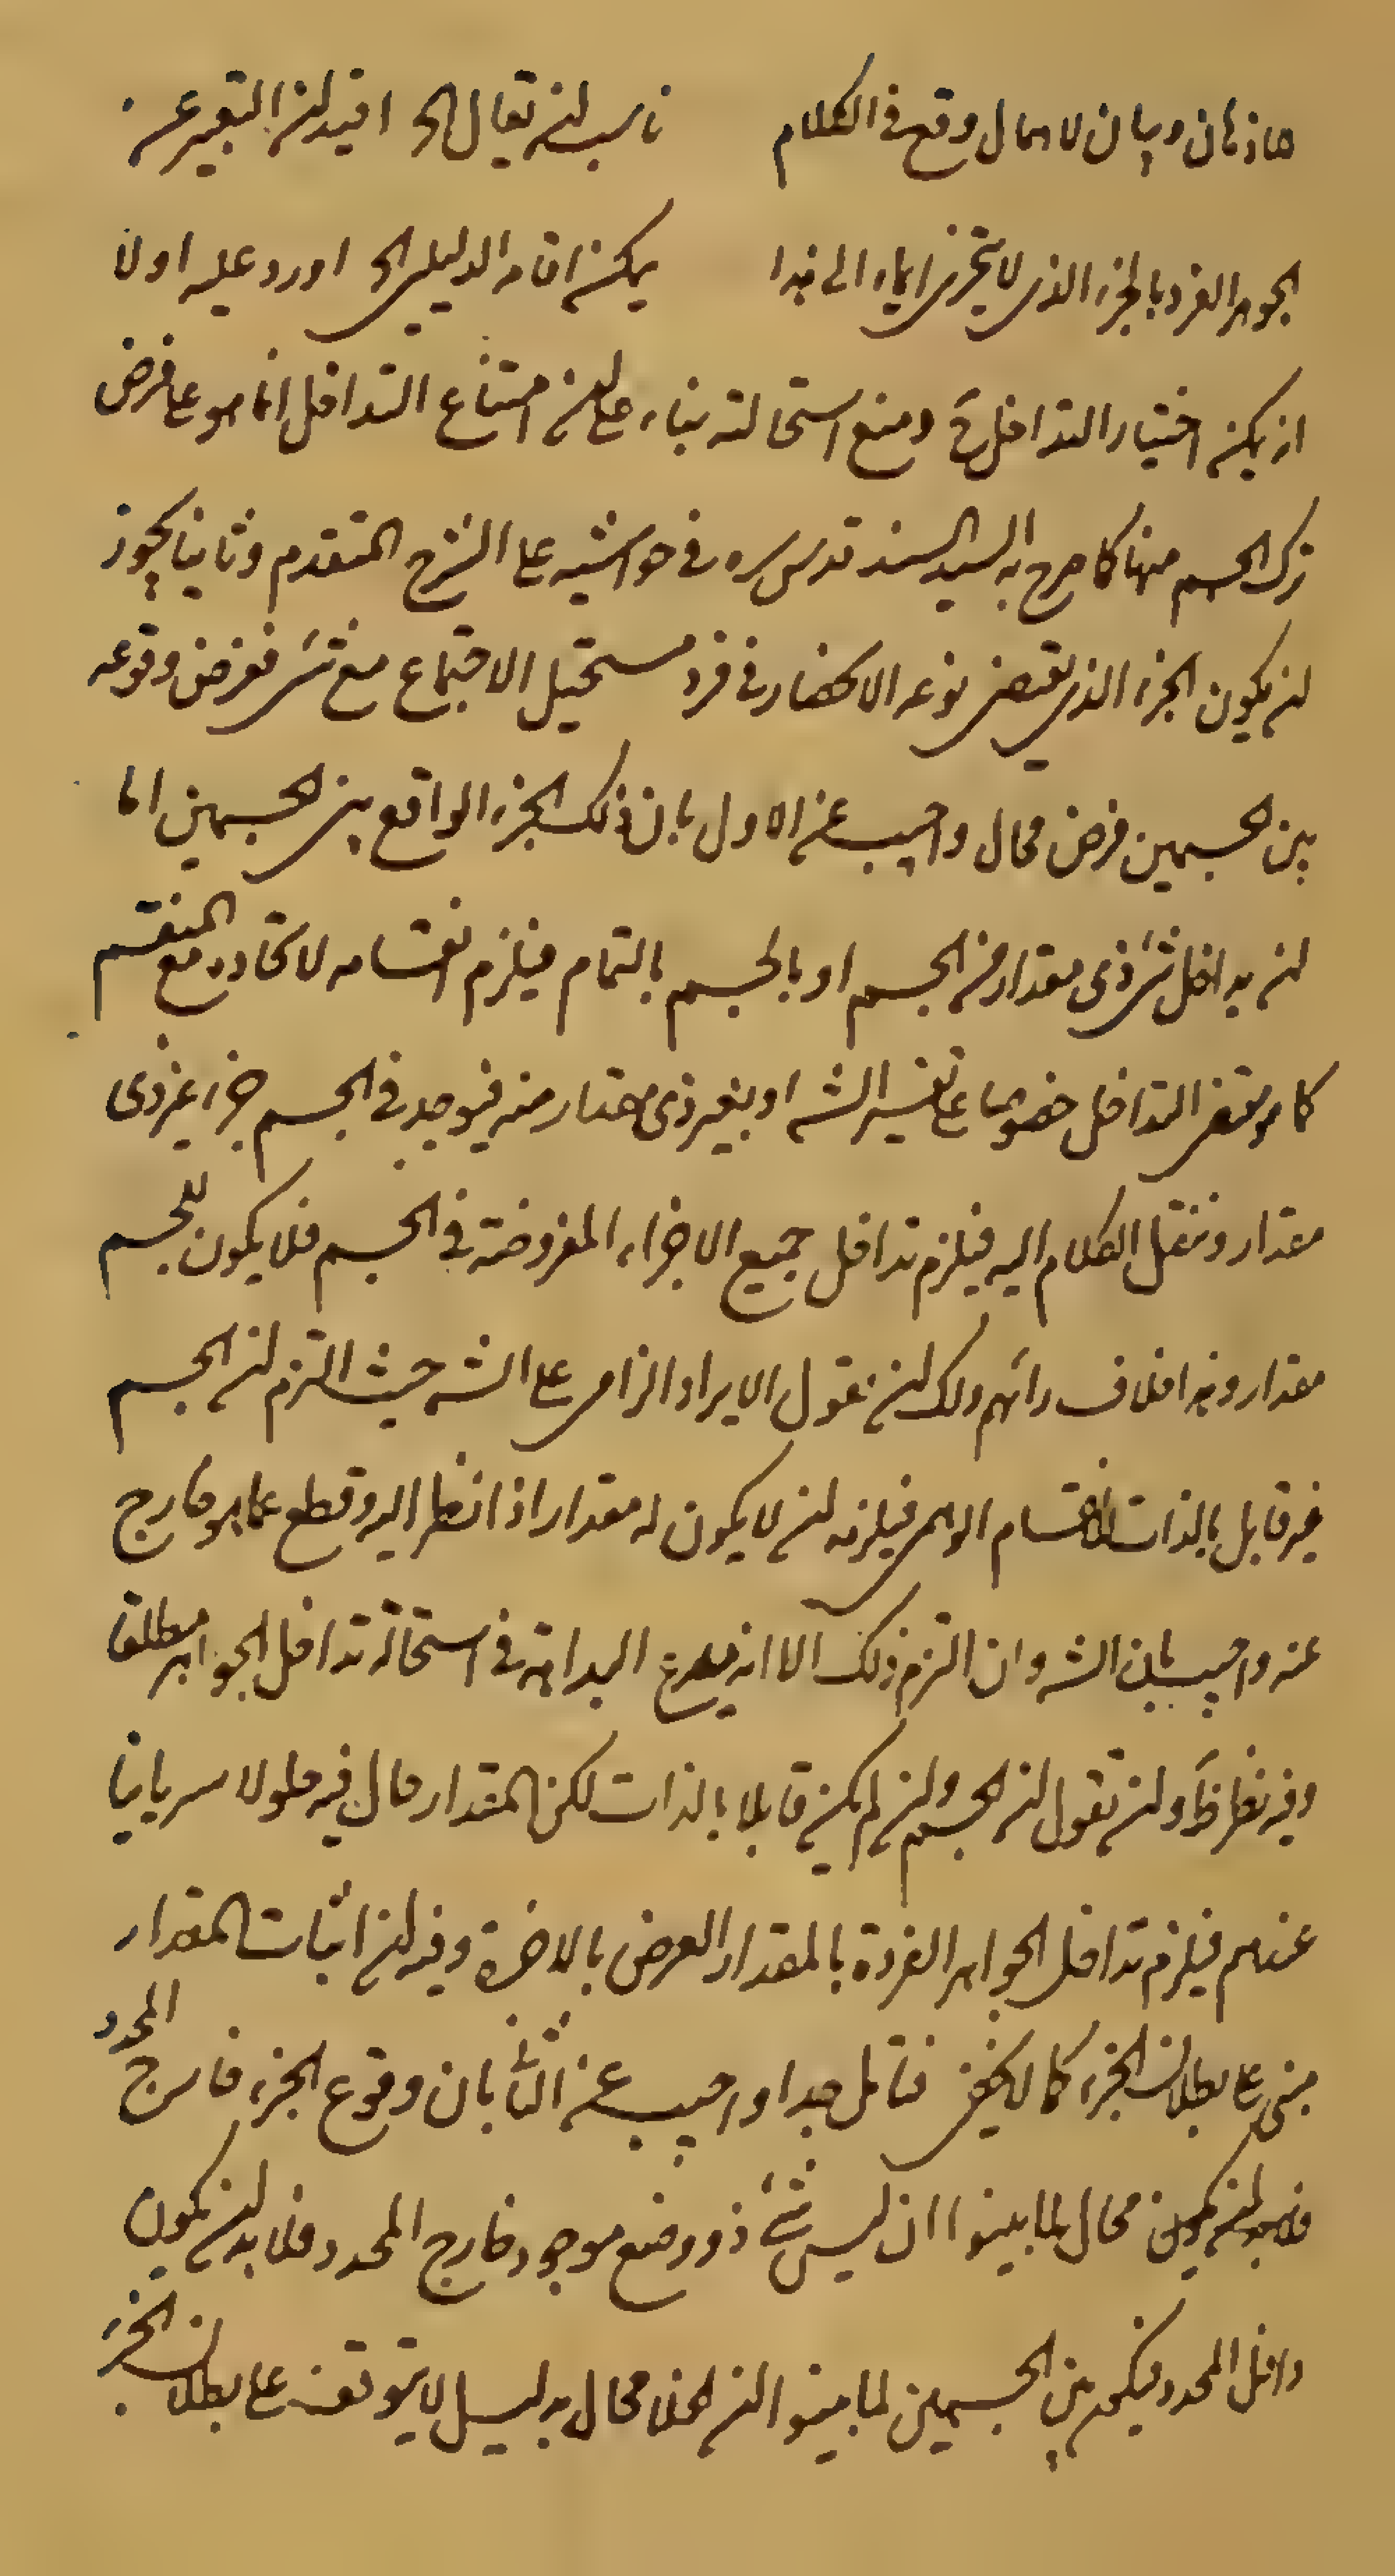 هاذ بان وبيان لا مال وقع فى الكلام ناسب لنه يقال الخ افيد لنه التعبير عن
الجوهر الفرد بالجزء الذى لا يتجزى ايماء الى هذا يمكن اقامة الدليل الخ اورد عليه اولا
انه يمكن اختيار التداخل ومنع استحالته بناء على لنه امتناع التداخل انما هو على فرض
تركب الجسم منها كما صرح به السيد السند قدس سره فى حواشيه على الشرح المتقدم وثانيا يجوز
لنه يكون الجزء الذى يقتضى نوعه الانحصار فى فرد مستحيل الاجتماع مع شئ ففرض وقوعه
بين الجسمين فرض محال واجيب عن الاول بان ذلك الجزء الواقع بين الجسمين اما
لنه يداخل شئ ذى مقدار من الجسم او بالجسم بالتمام فيلزم انقسامه لاتحاده مع المنقسم
كما هو مقتضى التداخل خصوصا على تفسير الشه او بغير ذى مقدار منه فيوجد فى الجسم جزء غير ذى
مقدار وننقل الكلام اليه فيلزم تداخل جميع الاجزاء المفروضة فى الجسم فلا يكون للجسم
مقدار وهذا خلاف رأيهم ولك لنه تقول الايراد الزامى على الشه حيث التزم لنه الجسم
غير قابل بالذات للانقسام الوهمى فيلزمه لنه لا يكون له مقدار اذا نظر اليه وقطع عما هو خارج
عنه واجيب بان الشه وان التزم ذلك الا انه البداهة فى استحالة تداخل الجواهر مطلقا
وفيه نظر ظ ولنه تقول لنه الجسم ولنه لم يكن قابلا بالذات لكن المقدار حال فيه حلولا سريانيا
عندهم فيلزم تداخل الجواهر الفردة بالمقدار العرض بالاخرة وفيه لنه اثبات المقدار
مبنى على بطلان الجزء كما لا يخفى فتامل جدا واجيب عن الثانى بان وقوع الجزء خارج المحدد
محال لما بينوا ان ليس شئ ذو وضع موجود خارج المحدد فلا بد لنه يكون
داخل المحدد فيكون بين الجسمين لما بينوا لنه الخلا محال بدليل لا يتوقف على بطلان الجزء